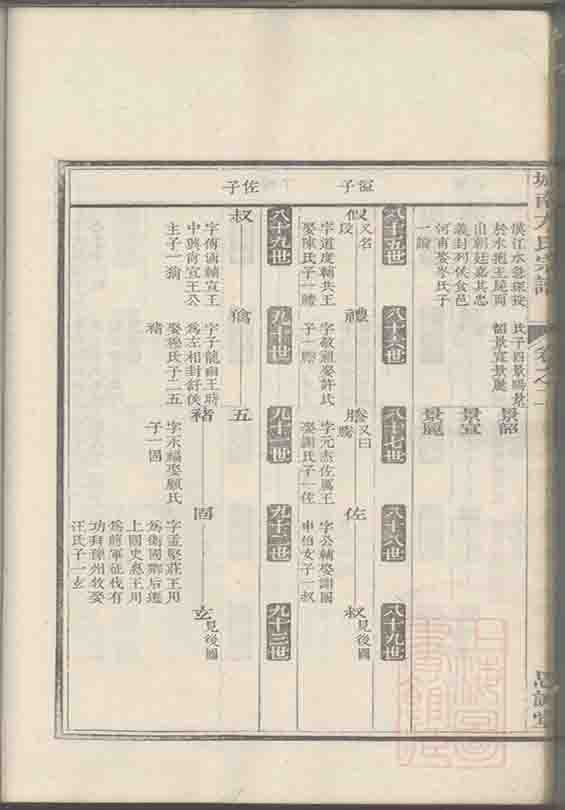 城南方氏宗譜
卷之一
漢江水急深投
於水抱王屍而
出朝廷嘉其忠
義封列侯食邑
河南娶岑氏子
一諭
氏子四景暘景
韶景宣景麗
景韶
景宣
景麗
子
八十五世
八十六世
八十七世
八十八世
八十九世
假又名段
字道度輔共王
娶陳氏子一
禮
字敬祖娶許氏
子一
又曰
字元杰佐厲王
娶謝氏子一佐
佐
字公輔娶謝國
申伯女子一叔
叔見後圖
佐子
八十九世
九十世
九十一世
九十二世
九十三世
叔
字傅涵輔宣王
中興尚宣王公
主子一
字子龍幽王時
為左相封紓侯
娶程氏子二五
褚
五
褚
字丕福娶顧氏
子一固
固
字孟堅莊王用
為衛國卿后進
上國史惠王用
為將軍征伐有
功拜豫州牧娶
汪氏子一玄
玄見後圖